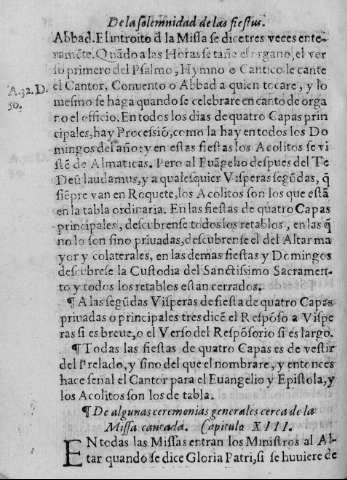 De la solemnidad de las fiestas.
Abbad. El introito đ la Missa se dice tres veces ente-
ramẽte. Quãdo a las Horas se tañe el organo, el ver
so primero del Psalmo, Hymno o Cantico le cante
A.32. D.
el Cantor, Convento o Abbad a quien tocare, y lo
50.
mesmo se haga quando se celebrare en canto de orga
no el officio. En todos los dias de quatro Capas prin
cipales, hay Processiõ, como la hay en todos los Do
mingos del año: y en estas fiestas los Acolitos se vi
stẽ de Almaticas. Pero al Euãgelio despues del Te
Deũ laudamus, y a qualesquier Visperas segũdas, q̃
siẽpre van en Roquete, los Acolitos son los que estã
en la tabla ordinaria. En las fiestas de quatro Capas
principales, descubrense todos los retablos, en las q̃
no lo son sino privadas, descubrense el del Altar ma
yor y colaterales, en las demas fiestas y Domingos
descubrese la Custodia del Sanctissimo Sacramen-
to y todos los retablos estan cerrados.
¶ A las segũdas Visperas de fiesta de quatro Capas
privadas o principales tres dicẽ el Respõso a Vispe
ras si es breve, o el Verso del Respõsorio si es largo.
¶ Todas las fiestas de quatro Capas es de vestir
del Prelado, y sino del que el nombrare, y entonces
hace señal el Cantor para el Euangelio y Epistola, y
los Acolitos son los de tabla.
¶ De algunas ceremonias generales cerca de la
Missa cantada. Capitulo XIII.
EN todas las Missas entran los Ministros al Al-
tar quando se dice Gloria Patri, si se huuiere de